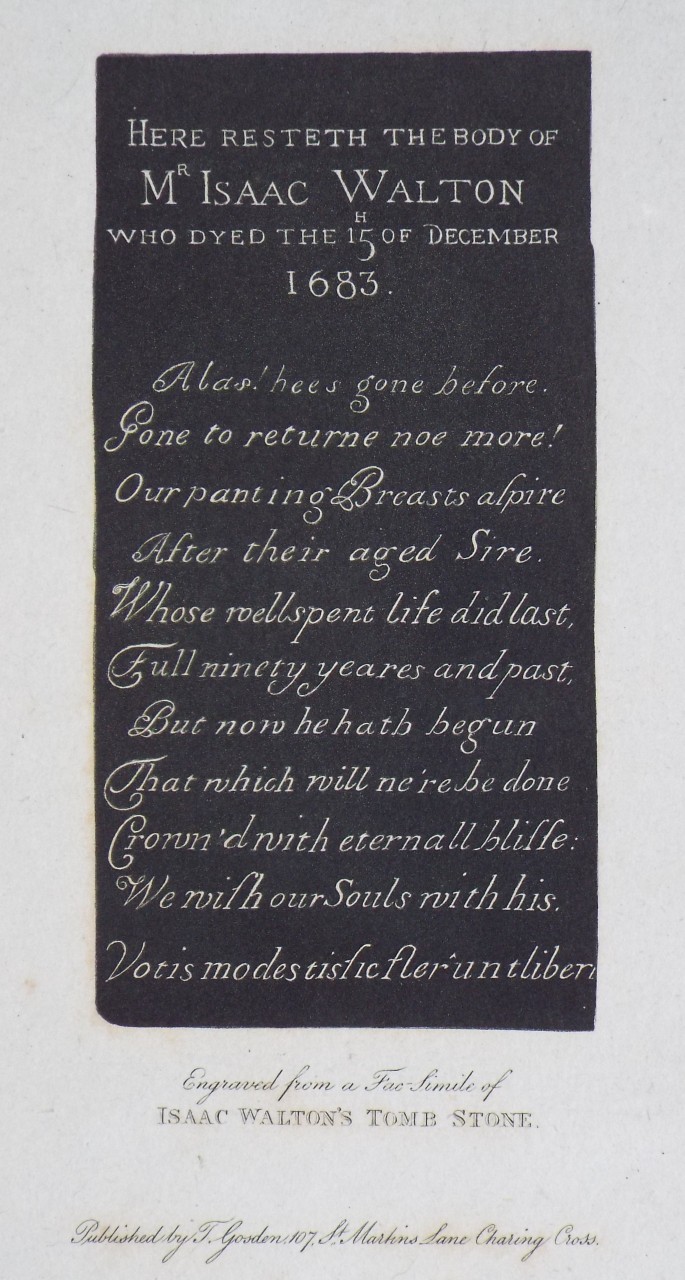 HERE RESTETH THE BODY OF
Mᴿ ISAAC WALTON
WHO DYED THE 15ᴴ OF DECEMBER
1683.
Alas! hees gone before.
Gone to returne noe more!
Our panting Breasts aſpire
After their aged Sire.
Whose wellspent life did last,
Full ninety yeares and past,
But now he hath begun
That which will ne're be done
Crown'd with eternall bliſſe:
We wiſh our Souls with his.
Votis modestis ſic fler^unt liberi
Engraved from a Fac-Simile of
ISAAC WALTON'S TOMB STONE.
Published by T. Gosden. 107, St. Martins Lane Charing Cross.